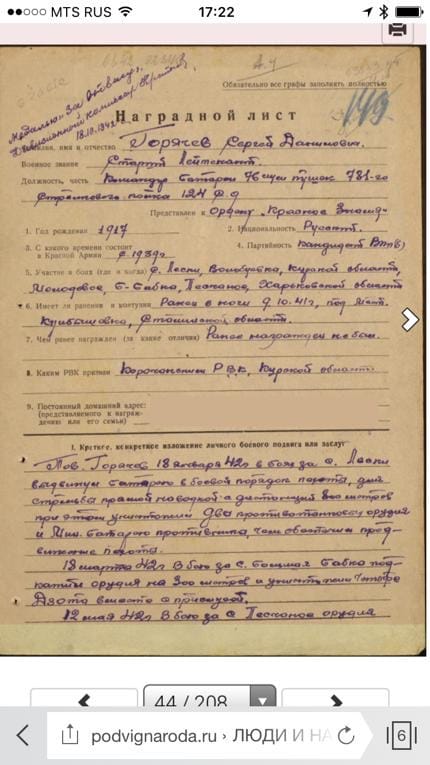 MTS RUS 17:22
Медалью "За Отвагу".
18.10.1942
149
Обязательно все графы заполнять полностью
Наградной лист
Фамилия, имя и отчество Горячев Сергей Данилович.
Военное звание Старший Лейтенант.
Должность, часть Командир батареи 76 м/м пушек 781-го
Стрелкового полка 124 с.д
Представлен к Ордену "Красное Знамя"
1. Год рождения 1917 2. Национальность Русский.
3. С какого времени состоит в Красной Армии с 1939г 4. Партийность Кандидат ВКП(б)
5. Участие в боях (где и когда) с. Пески, Курской области,
Б-Бабка, Песчаное, Харьковской области
6. Имеет ли ранения и контузии Ранен в ноги 9.10.41г, под
области.
7. Чем ранее награжден (за какие отличия) Ранее награжден не был.
8. Каким РВК призван РВК, Курской области.
9. Постоянный домашний адрес:
(представляемого к награждению или его семьи)
I. Краткое, конкретное изложение личного боевого подвига или заслуг
Тов. Горячев 18 января 42г в бою за с. Пески
выдвинул батарею в боевой порядок пехоты, для
стрельбы прямой наводкой с дистанции 800 метров
при этом уничтожил два противотанковых орудия
и мин. батарею противника, чем обеспечил прод-
вижение пехоты.
18 марта 42г в бою за с. Большая Бабка под-
катил орудия на 300 метров и уничтожил четыре
Дзота вместе с прислугой.
12 мая 42г в бою за с Песчаное орудия
44 / 208
podvignaroda.ru › ЛЮДИ И НА
6